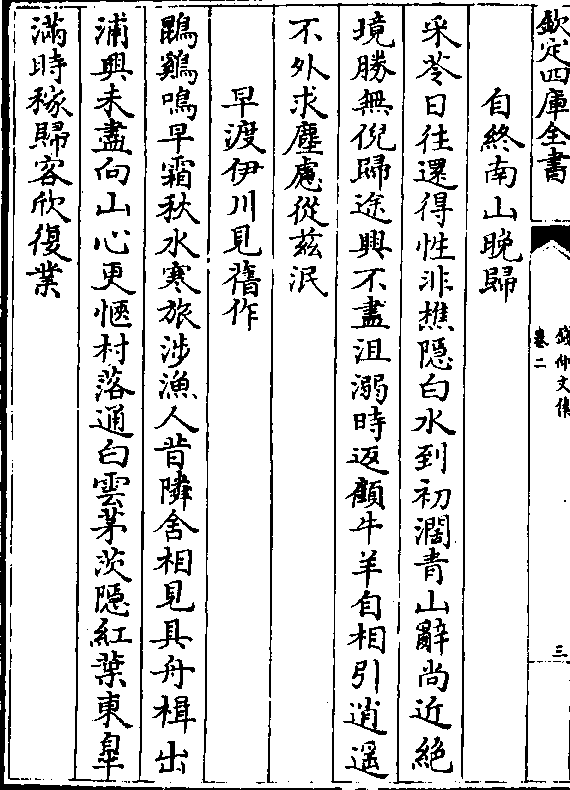 欽定四庫全書
錢仲文集
卷二
三
自終南山晚歸
采苓日往還得性非樵隱白水到初濶青山辭尚近絶
境勝無倪歸途興不盡沮溺時返顧牛羊自相引逍遥
不外求塵慮從兹泯
早渡伊川見舊作
鵾鷄鳴早霜秋水寒旅涉漁人昔隣舍相見具舟楫出
浦興未盡向山心更愜村落通白雲茅茨隱紅葉東臯
滿時稼歸客欣復業